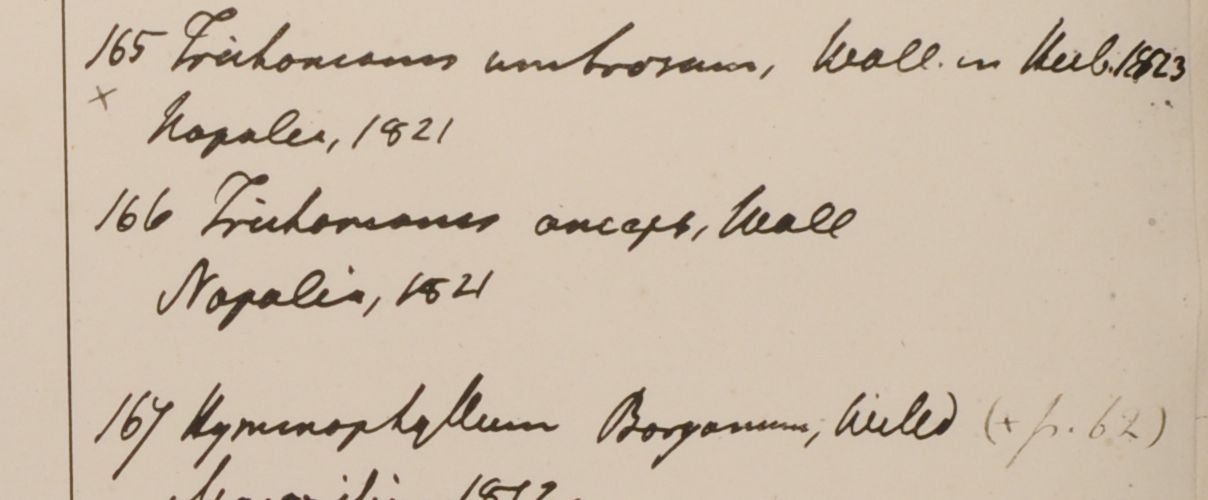 165 Trichomanes umbrosum, Wall. in Herb. 1823
x
Napalia, 1821
166 Trichomanes anceps, Wall
Napalia, 1821
167 Hymenophyllum Boryanum, Willd (+ p. 62)